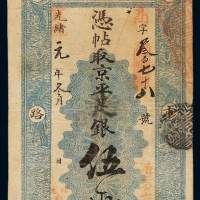 字叁百七十八號
憑帖取京平足銀伍兩
光緒元年冬月 日
路